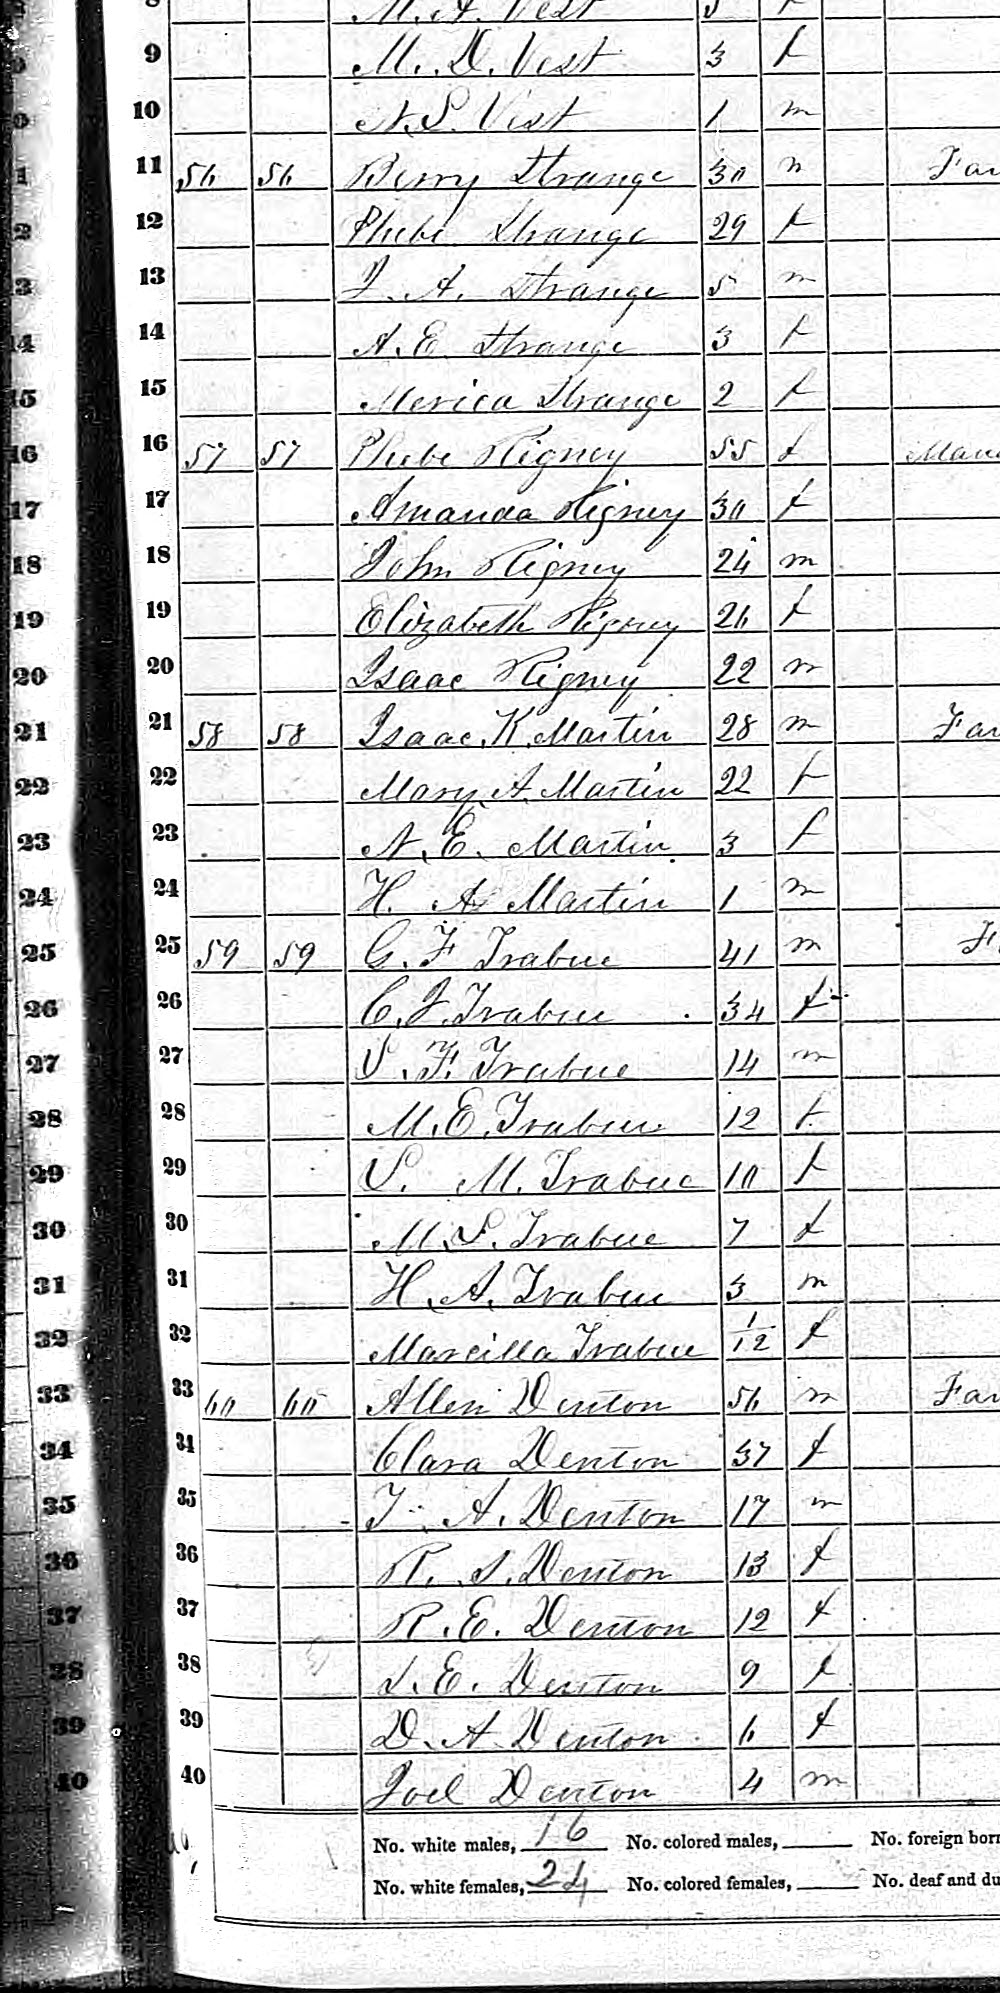 8 M. A. Vest 5 f
9 M. D. Vest 3 f
10 N. S. Vest 1 m
11 56 56 Berry Strange 30 m Far
12 Phebe Strange 29 f
13 J. A. Strange 5 m
14 A. E. Strange 3 f
15 Merica Strange 2 f
16 57 57 Phebe Rigney 55 f
17 Amanda Rigney 30 f
18 John Rigney 24 m
19 Elizabeth Rigney 26 f
20 Isaac Rigney 22 m
21 58 58 Isaac K. Martin 28 m Far
22 Mary A. Martin 22 f
23 N. E. Martin 3 f
24 H. A. Martin 1 m
25 59 59 G. F. Trabue 41 m F
26 C. J. Trabue 34 f
27 S. F. Trabue 14 m
28 M. E. Trabue 12 f
29 S. M. Trabue 10 f
30 M. S. Trabue 7 f
31 H. A. Trabue 3 m
32 Marcilla Trabue 1/12 f
33 60 60 Allen Denton 56 m Far
34 Clara Denton 37 f
35 T. A. Denton 17 m
36 R. S. Denton 13 f
37 R. E. Denton 12 f
38 S. E. Denton 9 f
39 D. A. Denton 6 f
40 Joel Denton 4 m
No. white males, 16 No. colored males, No. foreign born
No. white females, 24 No. colored females, No. deaf and du